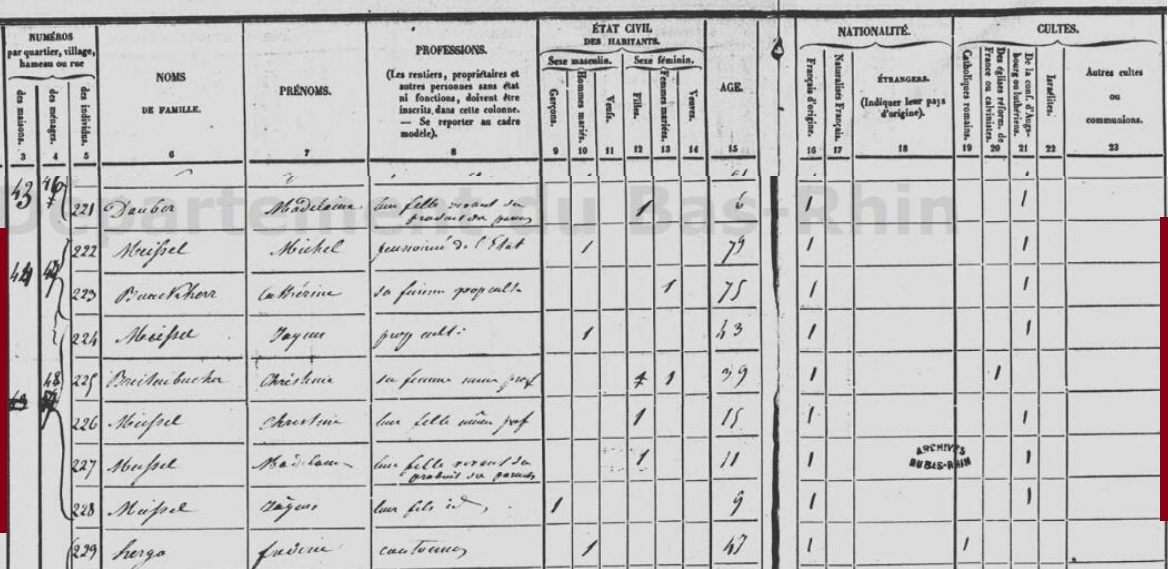 NUMÉROS
par quartier, village,
hameau ou rue
des maisons.
des ménages.
des individus.
NOMS
DE FAMILLE.
PRÉNOMS.
PROFESSIONS.
(Les rentiers, propriétaires et
autres personnes sans état
ni fonctions, doivent être
inscrits dans cette colonne.
— Se reporter au cadre
modèle).
ÉTAT CIVIL
DES HABITANTS.
Sexe masculin.
Sexe féminin.
Garçons.
Hommes mariés.
Veufs.
Filles.
Femmes mariées.
Veuves.
AGE.
NATIONALITÉ.
Français d'origine.
Naturalisés Français.
ÉTRANGERS.
(Indiquer leur pays
d'origine).
CULTES.
Catholiques romains.
Des églises réform. de
France ou calvinistes.
De la conf. d'Augs-
bourg ou luthériens.
Israélites.
Autres cultes
ou
communions.
3 4 5 6 7 8 9 10 11 12 13 14 15 16 17 18 19 20 21 22 23
Département du Bas-Rhin
43 221 Madeleine leur fille vivant du 1 6 1 1
222 Meissel Michel pensionné de l'Etat 1 79 1 1
44 223 Catherine sa femme prop cult. 1 75 1 1
224 Meissel 1 43 1 1
48 225 Christine sa femme même prof 1 39 1 1
226 Meissel Christine leur fille même prof 1 15 1 1
227 Meissel leur fille vivant du 1 11 1 1
produit de parents
228 Meissel leur fils id 1 9 1 1
229 1 47 1 1
ARCHIVES
DU BAS-RHIN